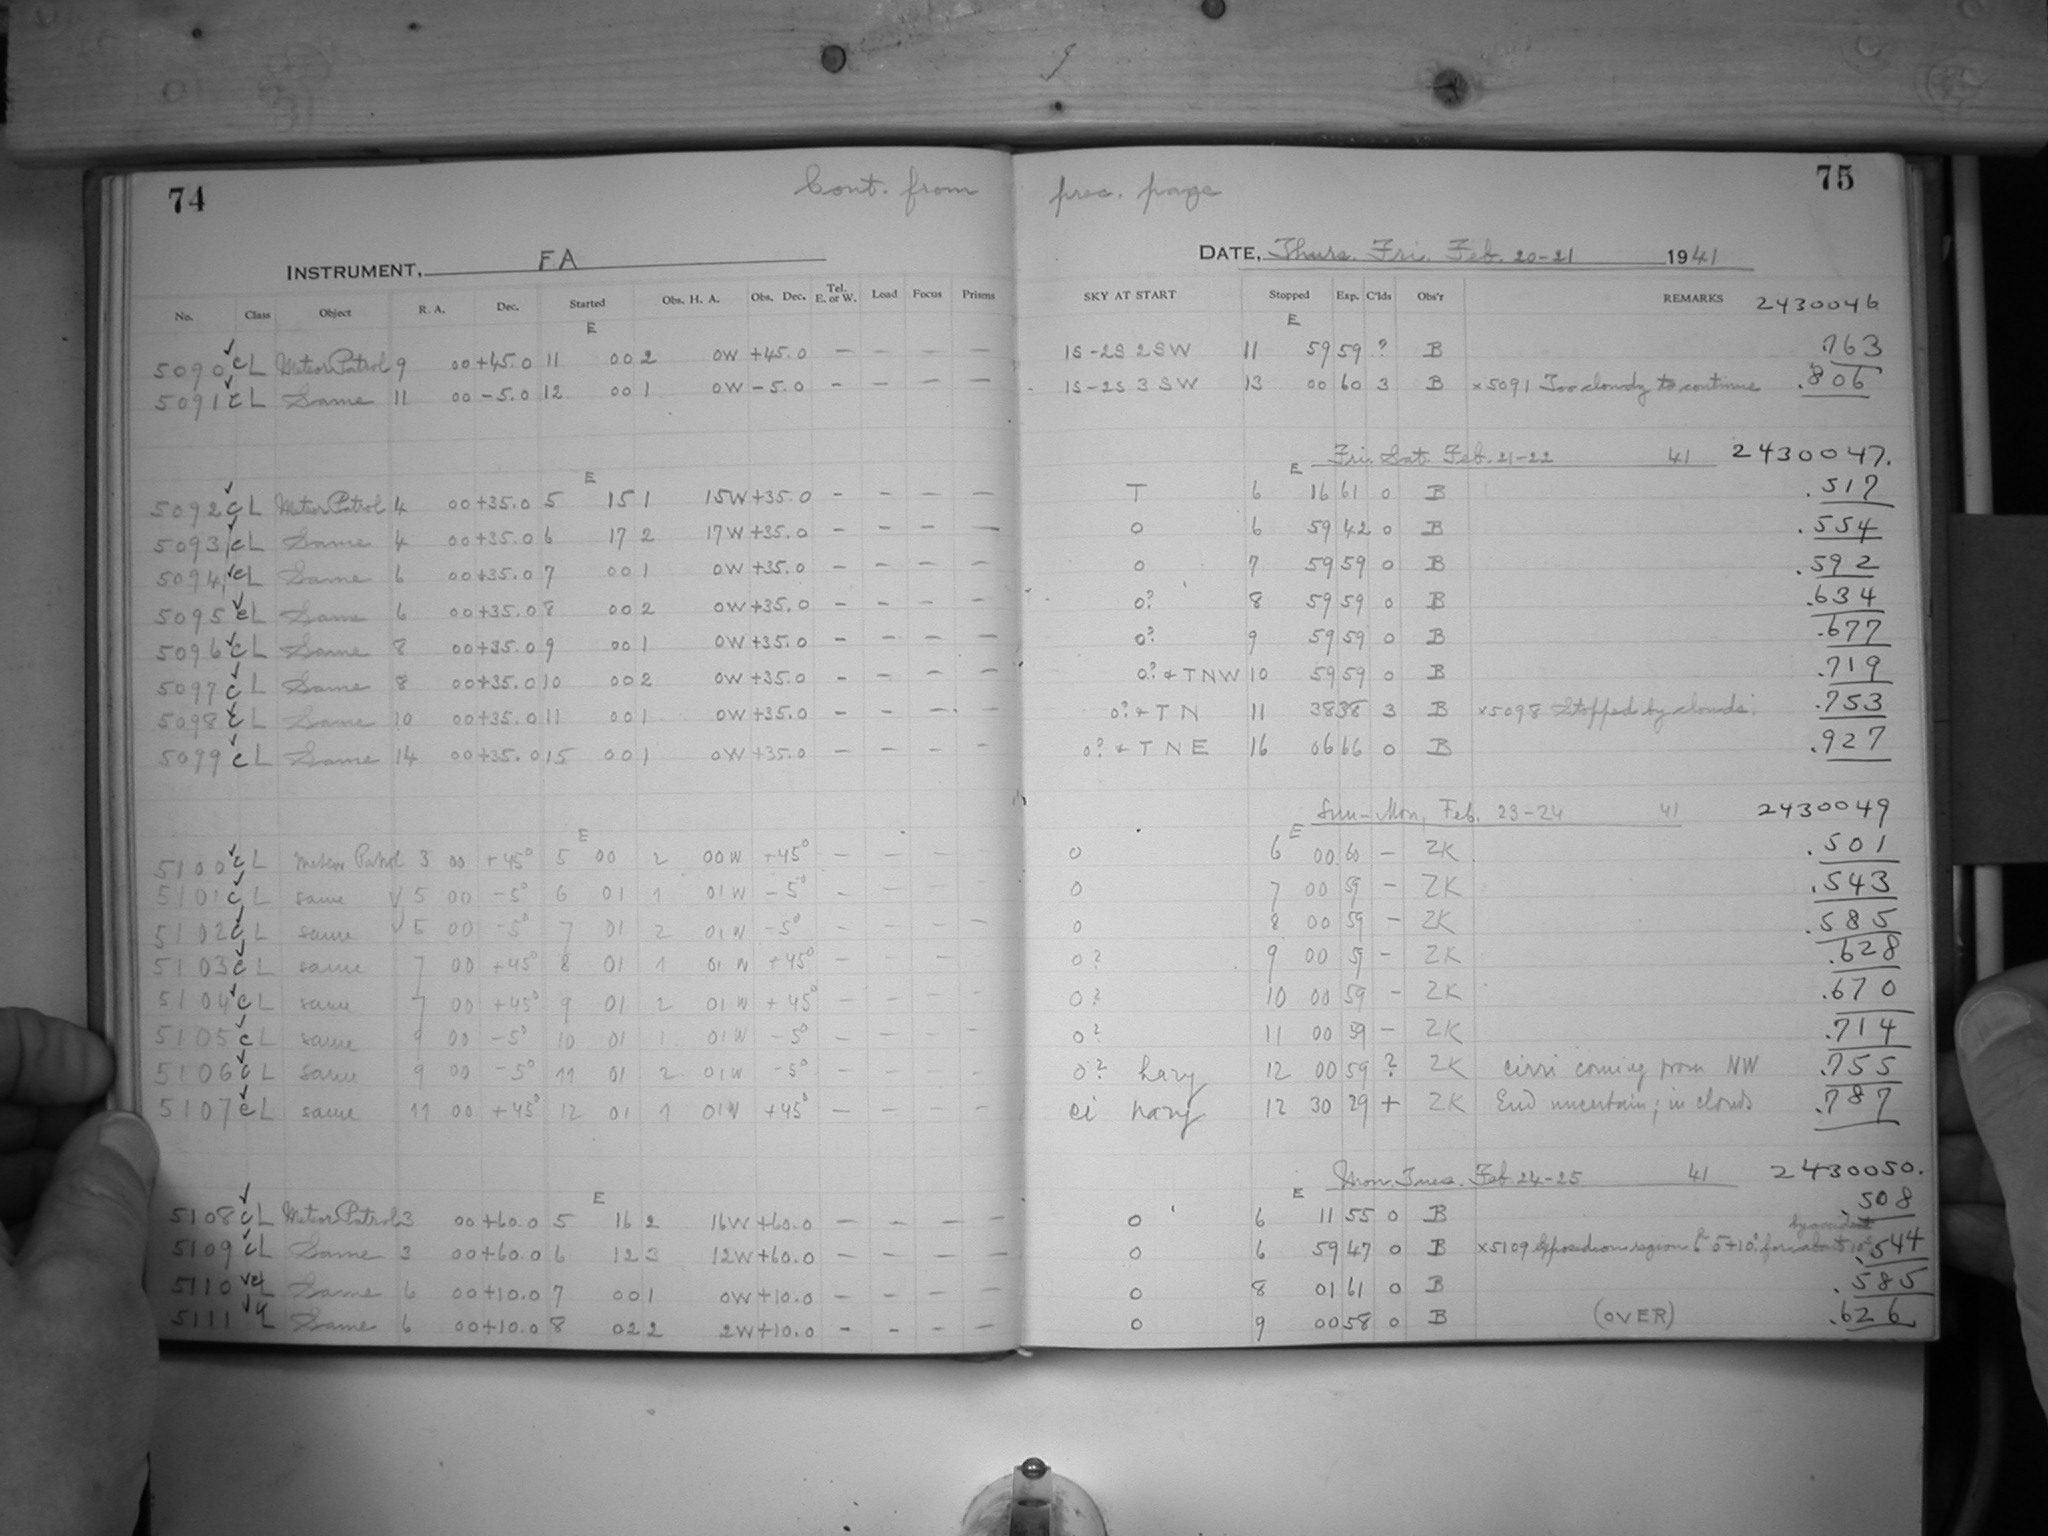 74 Cont. from prec. page 75
INSTRUMENT, FA DATE, Thurs. Fri. Feb. 20-21 1941
No. Class Object R. A. Dec. Started Obs. H. A. Obs. Dec. Tel. E. or W. Load Focus Prisms SKY AT START Stopped Exp. C'lds Obs'r REMARKS 2430046
E E
5090 ✓ c L Meteor Patrol 9 00 +45.0 11 00 2 0W +45.0 – – – – 1S-2S 2SW 11 59 59 ? B .763
5091 ✓ c L Same 11 00 -5.0 12 00 1 0W -5.0 – – – – 1S-2S 3SW 13 00 60 3 B x5091 Too cloudy to continue .806
E E Fri. Sat. Feb. 21-22 41 2430047.
5092 ✓ c L Meteor Patrol 4 00 +35.0 5 15 1 15W +35.0 – – – – T 6 16 61 0 B .517
5093 ✓ c L Same 4 00 +35.0 6 17 2 17W +35.0 – – – – 0 6 59 42 0 B .554
5094 ✓ c L Same 6 00 +35.0 7 00 1 0W +35.0 – – – – 0 7 59 59 0 B .592
5095 ✓ c L Same 6 00 +35.0 8 00 2 0W +35.0 – – – – 0? 8 59 59 0 B .634
5096 ✓ c L Same 8 00 +35.0 9 00 1 0W +35.0 – – – – 0? 9 59 59 0 B .677
5097 ✓ c L Same 8 00 +35.0 10 00 2 0W +35.0 – – – – 0? & T NW 10 59 59 0 B .719
5098 ✓ c L Same 10 00 +35.0 11 00 1 0W +35.0 – – – – 0? & T N 11 38 38 3 B x5098 Stopped by clouds. .753
5099 ✓ c L Same 14 00 +35.0 15 00 1 0W +35.0 – – – – 0? & T N E 16 06 66 0 B .927
E E Sun-Mon, Feb. 23-24 41 2430049
5100 ✓ c L Meteor Patrol 3 00 +45° 5 00 2 00W +45° – – – – 0 6 00 60 – ZK .501
5101 ✓ c L same ✓ 5 00 -5° 6 01 1 01W -5° – – – – 0 7 00 59 – ZK .543
5102 ✓ c L same ✓ 5 00 -5° 7 01 2 01W -5° – – – – 0 8 00 59 – ZK .585
5103 ✓ c L same 7 00 +45° 8 01 1 01W +45° – – – – 0? 9 00 59 – ZK .628
5104 ✓ c L same 7 00 +45° 9 01 2 01W +45° – – – – 0? 10 00 59 – ZK .670
5105 ✓ c L same 9 00 -5° 10 01 1 01W -5° – – – – 0? 11 00 59 – ZK .714
5106 ✓ c L same 9 00 -5° 11 01 2 01W -5° – – – – 0? hazy 12 00 59 ? ZK cirri coming from NW .755
5107 ✓ c L same 11 00 +45° 12 01 1 01W +45° – – – – ci hazy 12 30 29 + ZK End uncertain; in clouds .787
E E Mon. Tues. Feb 24-25 41 2430050.
5108 ✓ c L Meteor Patrol 3 00 +60.0 5 16 2 16W +60.0 – – – – 0 6 11 55 0 B .508
by accident
5109 ✓ c L Same 3 00 +60.0 6 12 3 12W +60.0 – – – – 0 6 59 47 0 B x5109 Exposed on region +10° for about .544
5110 ✓ c L Same 6 00 +10.0 7 00 1 0W +10.0 – – – – 0 8 01 61 0 B .585
5111 ✓ c L Same 6 00 +10.0 8 02 2 2W +10.0 – – – – 0 9 00 58 0 B (OVER) .626